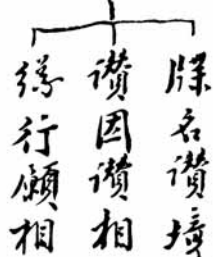 牒名讚境
讚因讚相
緣行願相